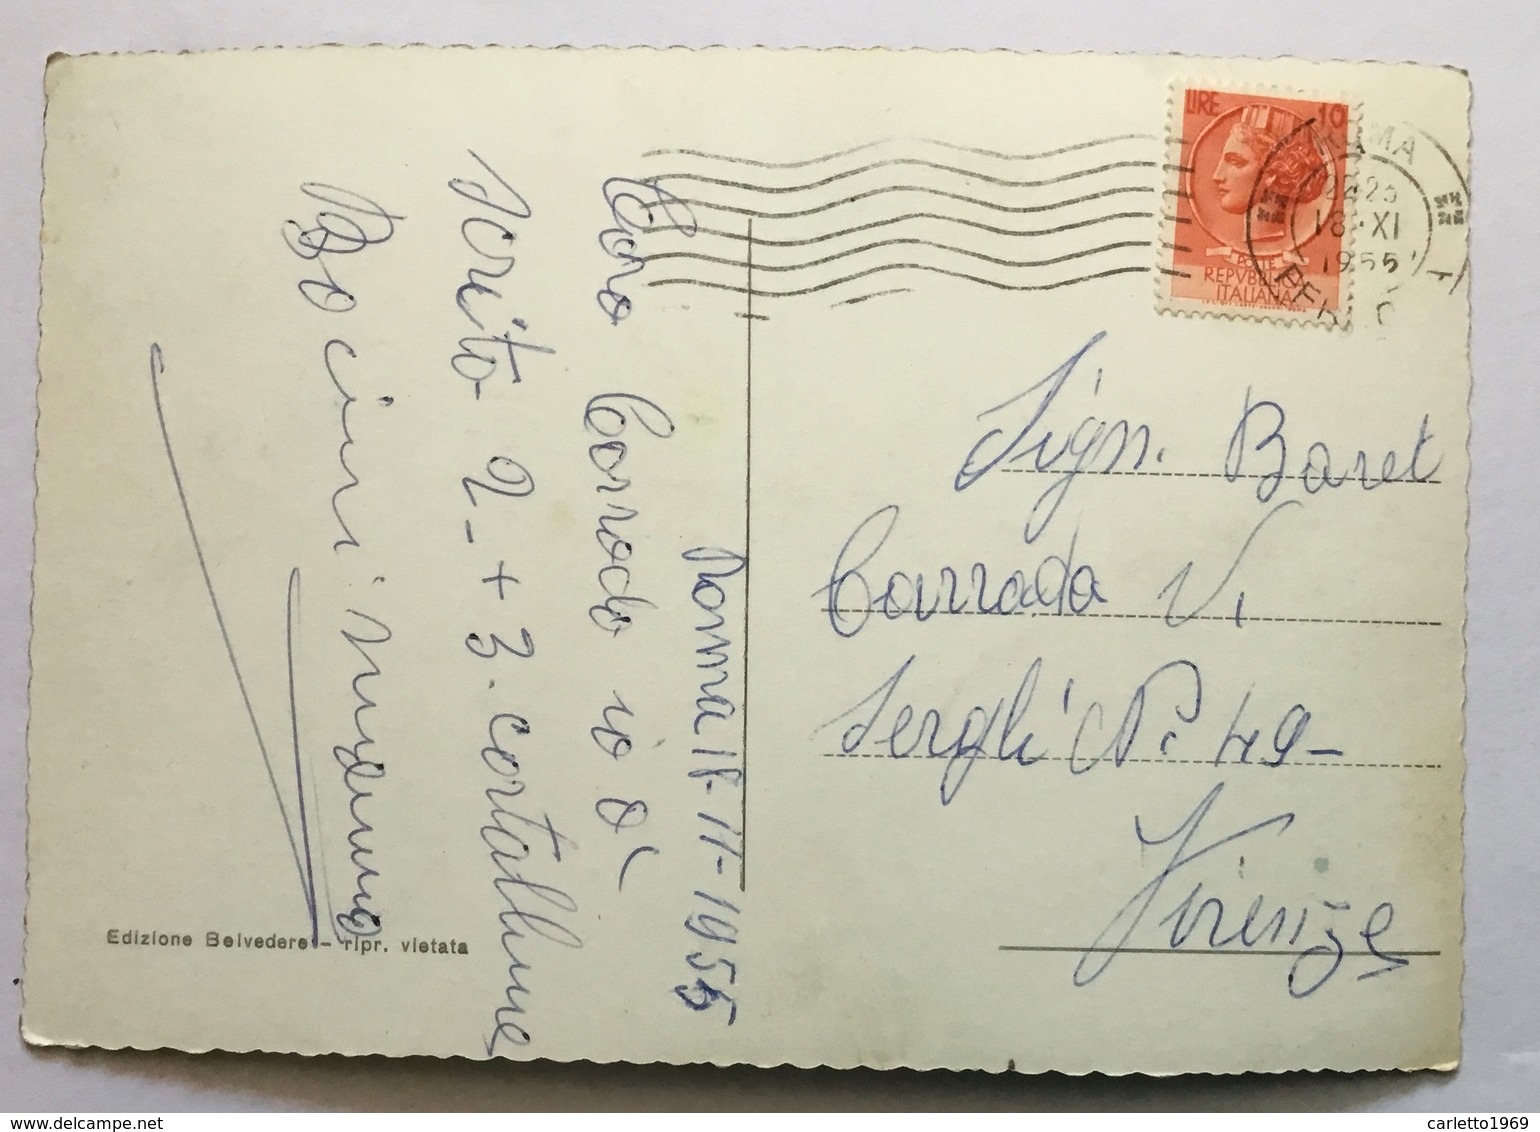 Roma 18-11-1955
Caro Corrado io ò
scrito 2-+3. cortalline
Bocini
Edizione Belvedere - ripr. vietata
LIRE 10
POSTE
REPVBBLICA
ITALIANA
ROMA
18·XI
1955
Sign. Baret
Corrado Vi
Sergli No 49-
Firenze
www.delcampe.net
carletto1969